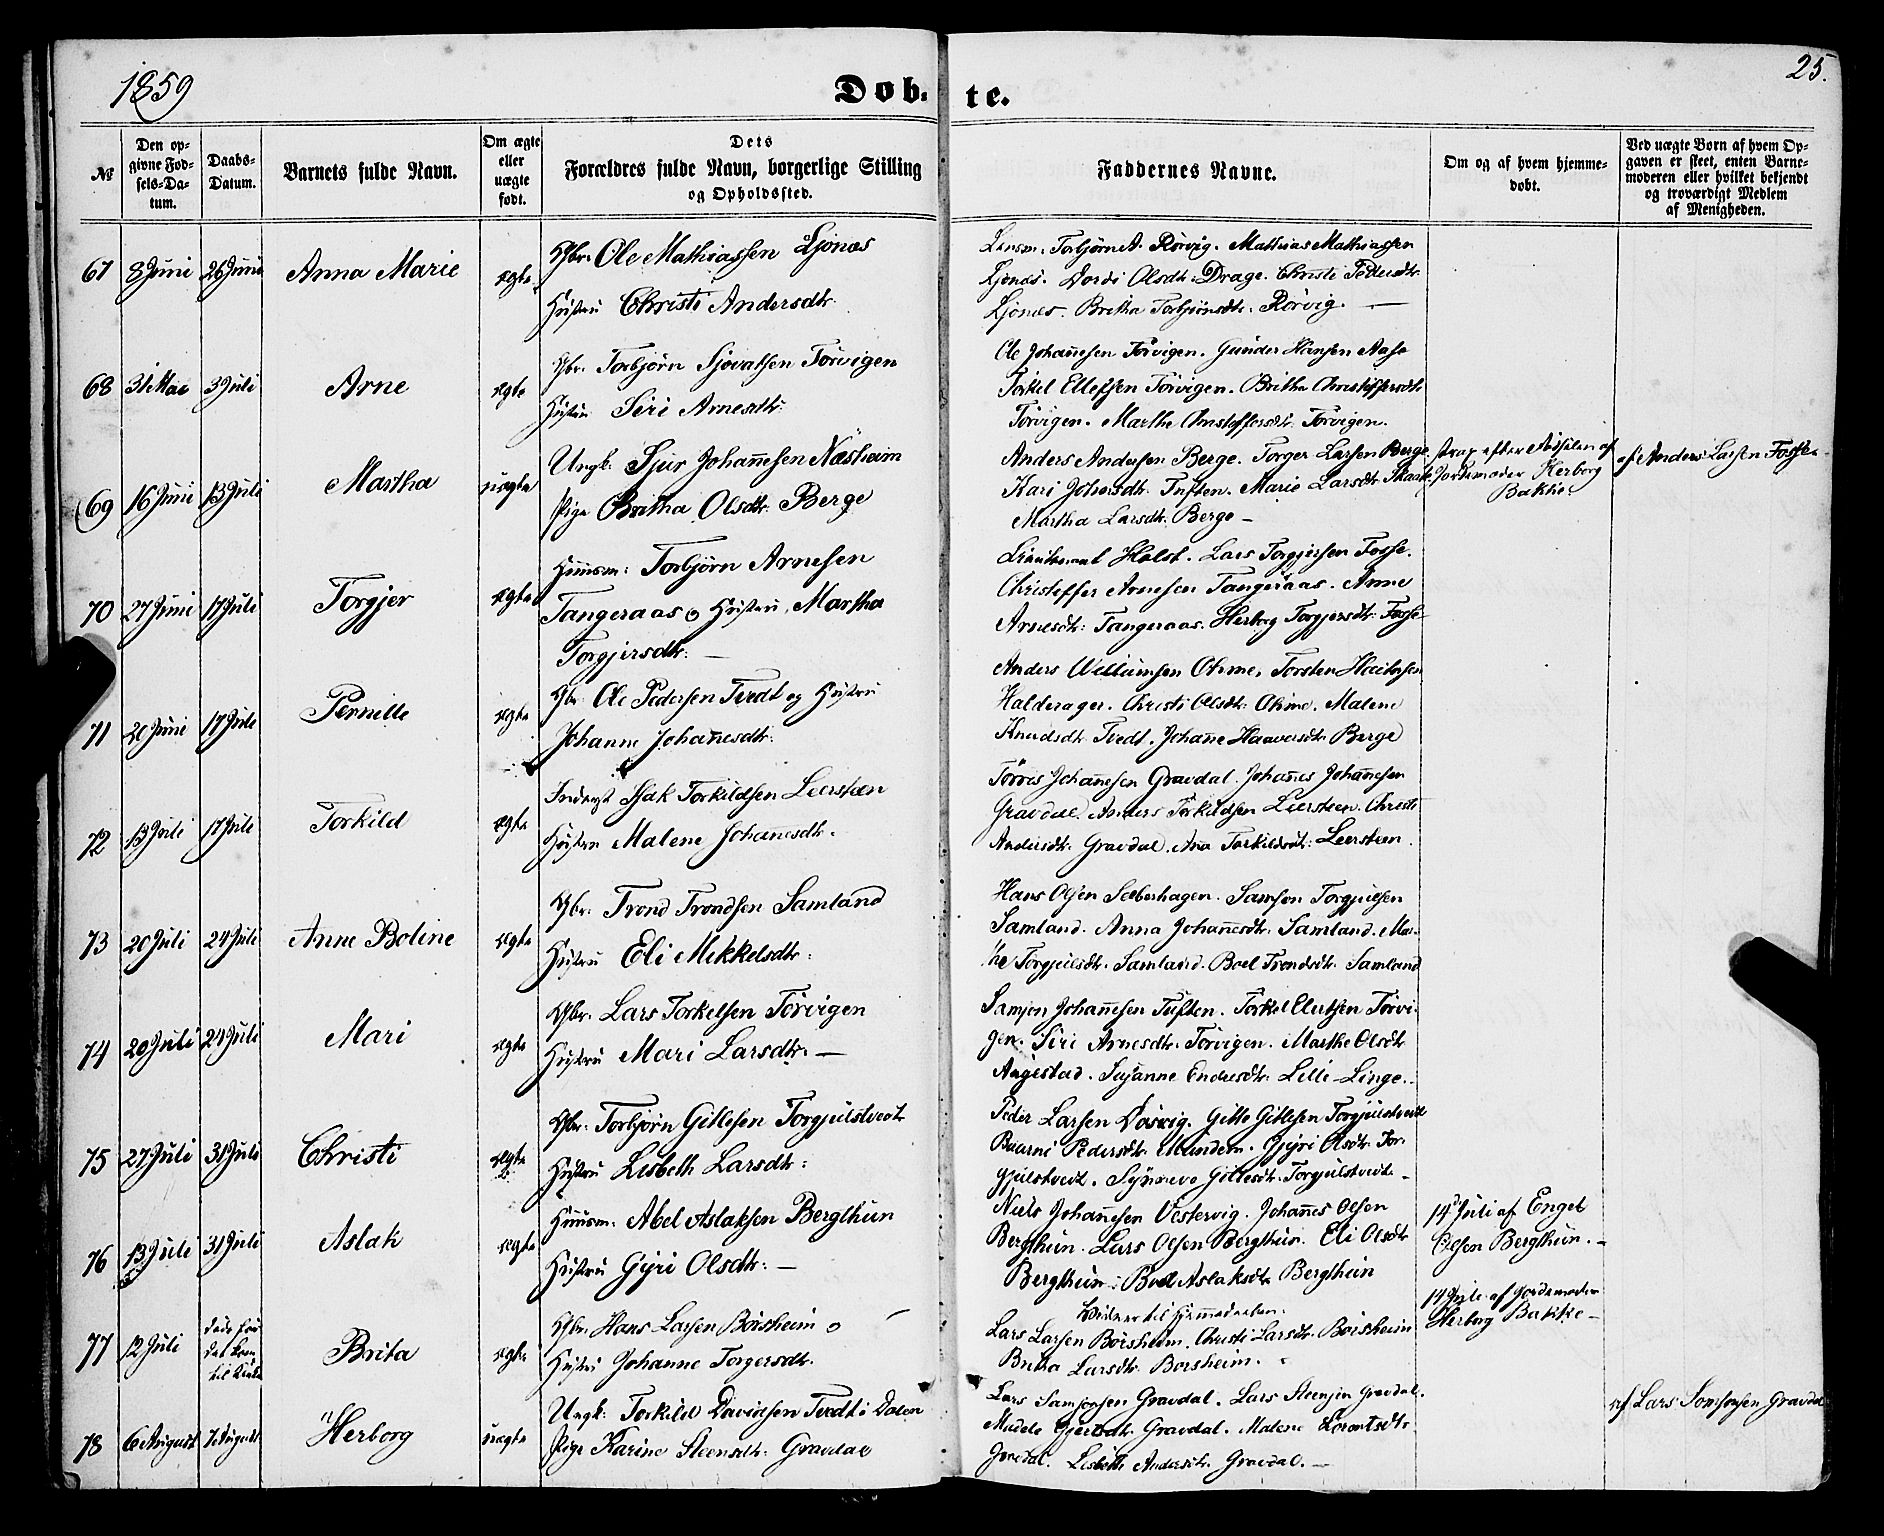 1859
Døb-
te.
25.
№
Den op-
givne Fød-
sels-Da-
tum.
Daabs-
Datum.
Barnets fulde Navn.
Om ægte
eller
uægte
født.
Dets
Forældres fulde Navn, borgerlige Stilling
og Opholdssted.
Faddernes Navne.
Om og af hvem hjemme-
døbt.
Ved uægte Børn af hvem Op-
gaven er skeet, enten Barne-
moderen eller hvilket bekjendt
og troværdigt Medlem
af Menigheden.
67 8 Juni 26 Juni Anna Marie ægte
Gbr. Ole Mathiassen Ljonæs
Hustru Christi Andersdtr.
Lensm. Torbjørn A. Rørvig. Mathias Mathiassen
Ljonæs. Dordi Olsdtr. Drage. Christi Pedersdtr.
Ljonæs. Britha Torbjørnsdtr. Rørvig. —
68 31 Mai 3 Juli Arne ægte
Gbr. Torbjørn Sjovatsen Tørvigen
Hustru Siri Arnesdtr.
Ole Johannesen Tørvigen. Gunder Hansen Aase
Torkel Ellefsen Tørvigen. Britha Christoffersdtr.
Tørvigen. Marthe Christoffersdtr. Tørvigen.
69 16 Juni 13 Juli Martha uægte
Ungk. Sjur Johannesen Næsheim
Pige Britha Olsdtr. Berge
Anders Andersen Berge. Torger Larsen Berge
Kari Johsdtr. Tuften. Marie Larsdtr. Skaale
Martha Larsdtr. Berge —
strax efter Fødselen af
Jordemoder Herborg
Bakke.
af Anders Larsen Fosse.
70 27 Juni 17 Juli Torgjer ægte
Huusm. Torbjørn Arnesen
Tangeraas o Hustru, Martha
Torgjersdtr. —
Lieutenant Holst. Lars Torgjersen Fosse.
Christoffer Arnesen Tangeraas. Anne
Arnesdtr. Tangeraas. Herborg Torgjersdtr. Fosse
71 20 Juni 17 Juli Pernille ægte
Gbr. Ole Pedersen Tvedt og Hustru
Johanne Johannesdtr.
Anders Willumsen Ohme. Torsten
Halderager. Christi Olsdtr. Ohme. Malene
Knudsdtr. Tvedt. Johanne Haaversdtr. Berge
72 13 Juli 17 Juli Torkild ægte
Inderst Isak Torkildsen Leersteen
Hustru Malene Johannesdtr.
Tørres Johannesen Gravdal. Johannes Johannesen
Gravdal. Anders Torkildsen Leersteen. Christi
Andersdtr. Gravdal. Ana Torkildsdtr. Leersteen.
73 20 Juli 24 Juli Anne Boline ægte
Gbr. Trond Trondsen Samland
Hustru Eli Mikkelsdtr.
Hans Olsen Solberhagen. Samson Torgjulsen
Samland. Anna Johannesdtr. Samland. Mar-
the Torgjulsdtr. Samland. Boel Trondsdtr. Samland
74 20 Juli 24 Juli Mari ægte
Gbr. Lars Torkelsen Tørvigen
Hustru Mari Larsdtr. —
Samson Johannesen Tuften. Torkel Ellertsen Tørvi-
gen. Siri Arnesdtr. Tørvigen. Marthe Olsdtr.
Augestad. Susanne Endresdtr. Lille-Linge.
75 27 Juli 31 Juli Christi ægte
Gbr. Torbjørn Gitlesen Torgjulstvedt
Hustru Lisbeth Larsdtr.
Peder Larsen Døsvig. Gitle Gitlesen Torgjulstvedt
Pedersdtr. Mundem. Gyri Olsdtr. Tor-
gjulstvedt. Synneve Gitlesdtr. Torgjulstvedt.
76 13 Juli 31 Juli Aslak ægte
Huusm. Abel Aslaksen Bergthun
Hustru Gyri Olsdtr. —
Niels Johannesen Vestervig. Johannes Olsen
Bergthun. Lars Olsen Bergthun. Eli Olsdtr.
Bergthun. Boel Aslaksdtr. Bergthun
14 Juli af Engel
Olsen Bergthun. —
77 12 Juli døde før
det kom
til Kirke
Brita ægte
Gbr. Hans Larsen Børsheim o
Hustru Johanne Torgersdtr.
Vidner til Hjemmedaaben:
Lars Larsen Børsheim. Christi Larsdtr. Børsheim
Britha Larsdtr. Børsheim.
14 Juli af Jordemoder
Herborg Bakke —
78 6 August 7 August Herborg uægte
Ungk. Torkild Davidsen Tvedt i Dalen
Pige Karine Steensdtr. Gravdal
Lars Samsonsen Gravdal. Lars Steensen Gravdal.
Madele Gjertsdtr. Gravdal. Malene Lorentsdtr.
Gravdal. Lisbeth Andersdtr. Gravdal. —
af Lars Samsonsen Gravdal